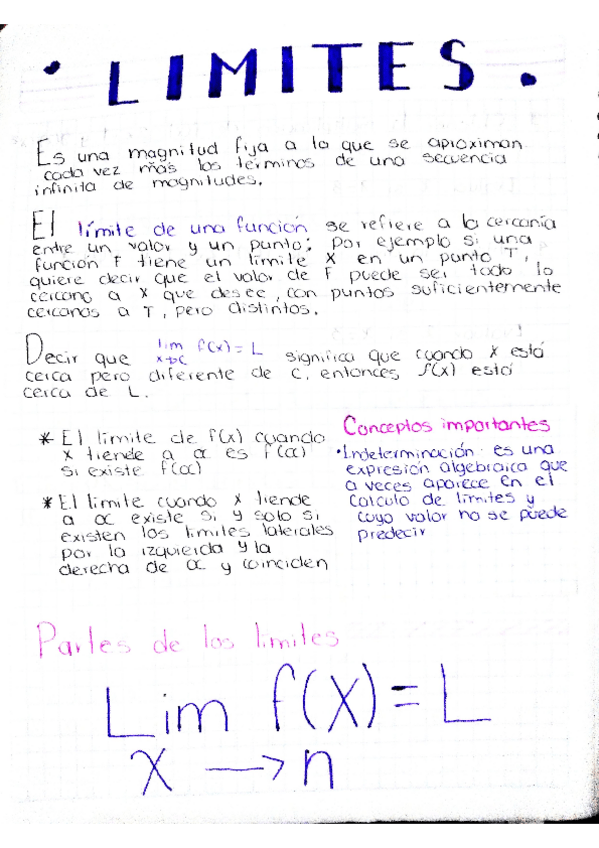 • LIMITES •
Es una magnitud fija a la que se aproximan
cada vez más los términos de una secuencia
infinita de magnitudes.
El límite de una función se refiere a la cercanía
entre un valor y un punto; por ejemplo si una
función f tiene un límite X en un punto T,
quiere decir que el valor de F puede ser todo lo
cercano a X que desee, con puntos suficientemente
cercanos a T, pero distintos.
Decir que lim x→c f(x) = L significa que cuando x está
cerca pero diferente de c, entonces f(x) está
cerca de L.
* El límite de f(x) cuando
x tiende a α es f(α)
si existe f(α)
* El límite cuando x tiende
a α existe si y solo si
existen los límites laterales
por la izquierda y la
derecha de α y coinciden
Conceptos importantes
• Indeterminación: es una
expresión algebraica que
a veces aparece en el
calculo de límites y
cuyo valor no se puede
predecir
Partes de los limites
Lim f(x) = L
x → n